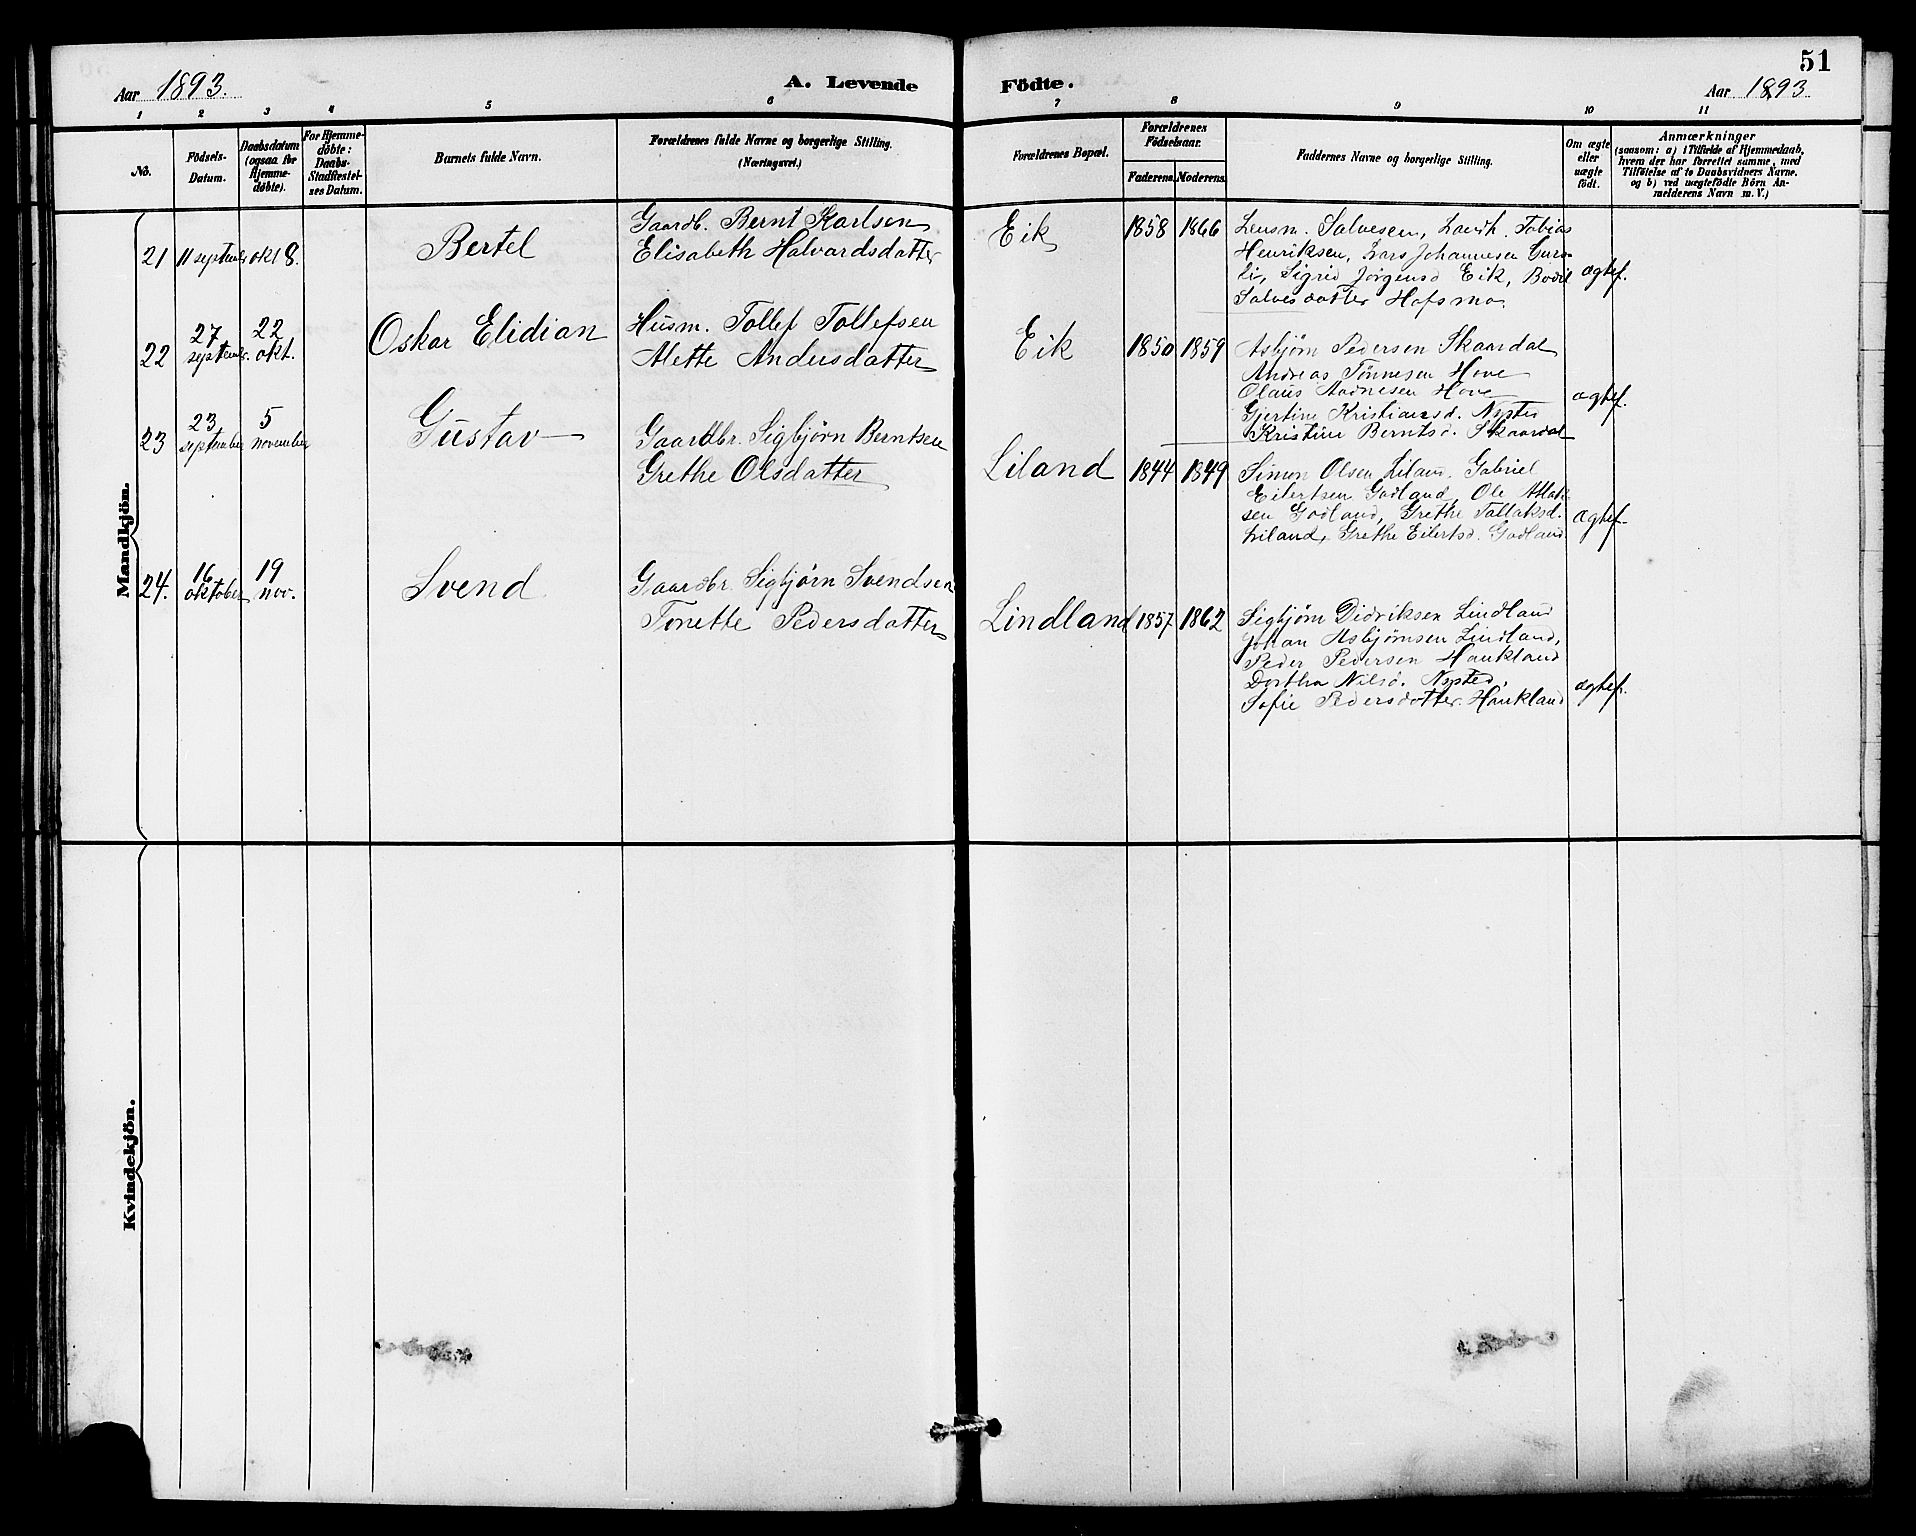 51
Aar 1893.
A. Levende
Födte.
Aar 1893
1 2 3 4 5 6 7 8 9 10 11
No.
Födsels-
Datum.
Daabsdatum
(ogsaa for
Hjemme-
døbte).
For Hjemme-
døbte:
Daabs-
Stadfæstel-
ses Datum.
Barnets fulde Navn.
Forældrenes fulde Navne og borgerlige Stilling.
(Næringsvei.)
Forældrenes Bopæl.
Forældrenes
Fødselsaar.
Faderens. Moderens.
Faddernes Navne og borgerlige Stilling.
Om ægte
eller
uægte
födt.
Anmærkninger
(saasom: a) i Tilfælde af Hjemmedaab,
hvem der har forrettet samme, med
Tilføielse af to Daabsvidners Navne.
og b) ved uægtefödte Börn An-
melderens Navn m. V.)
Mandkjön.
21 11 septemb. okt 8. Bertel
Gaardb. Bernt Karlsen
Elisabeth Halvardsdatter
Eik 1858 1866
Lensm. Salvesen, Tobias
Henriksen, Lars Johannesen
Sigrid Jørgensd Eik, Bodil
Salvesdatter Hofsmo.
ægtef.
22 27 septemb. 22 okt. Oskar Elidian
Husm. Tollef Tollefsen
Alette Andersdatter
Eik 1850 1859
Asbjørn Pedersen Skaardal
Andreas Tönnesen Hove
Olaus Aadnesen Hove
Gjertine Kristiansd. Nysted
Kristine Berntsd. Skaardal
ægtef.
23 23 september 5 november Gustav
Gaardbr. Sigbjørn Berntsen
Grethe Olsdatter
Liland 1844 1849
Simon Olsen Liland, Gabriel
Eilertsen Godland, Ole Atlak-
sen Godland, Grethe Tallaksd.
Liland, Grethe Eilertsd. Godland
ægtef.
24. 16 oktober 19 nov. Svend
Gaardbr. Sigbjørn Svendsen
Tonette Pedersdatter
Lindland 1857 1862
Sigbjørn Didriksen Lindland
Johan Asbjørnsen Lindland,
Peder Pedersen Haukland
Dorthea Nilsd. Nysted,
Sofie Pedersdatter Haukland
ægtef.
Kvindekjön.